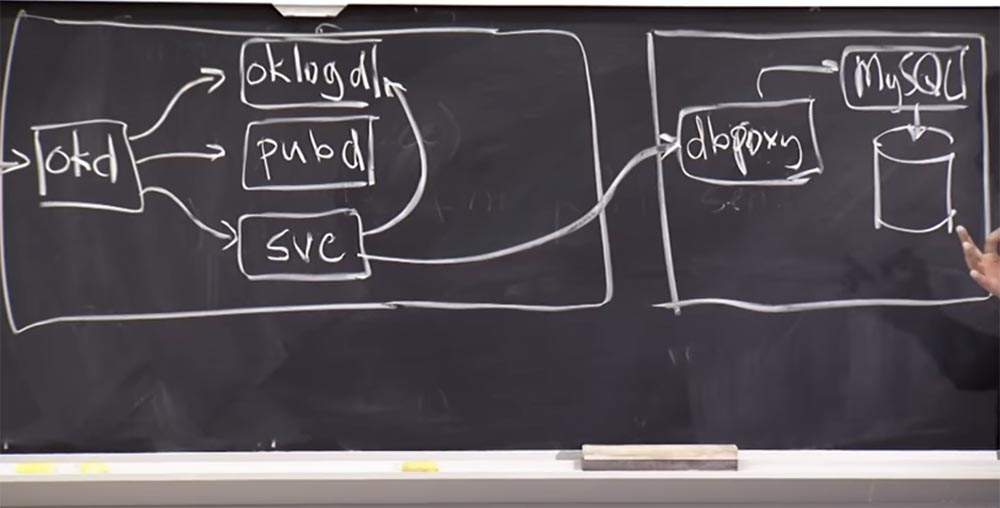 oklogd
okd
pubd
svc
dbpoxy
MySQL